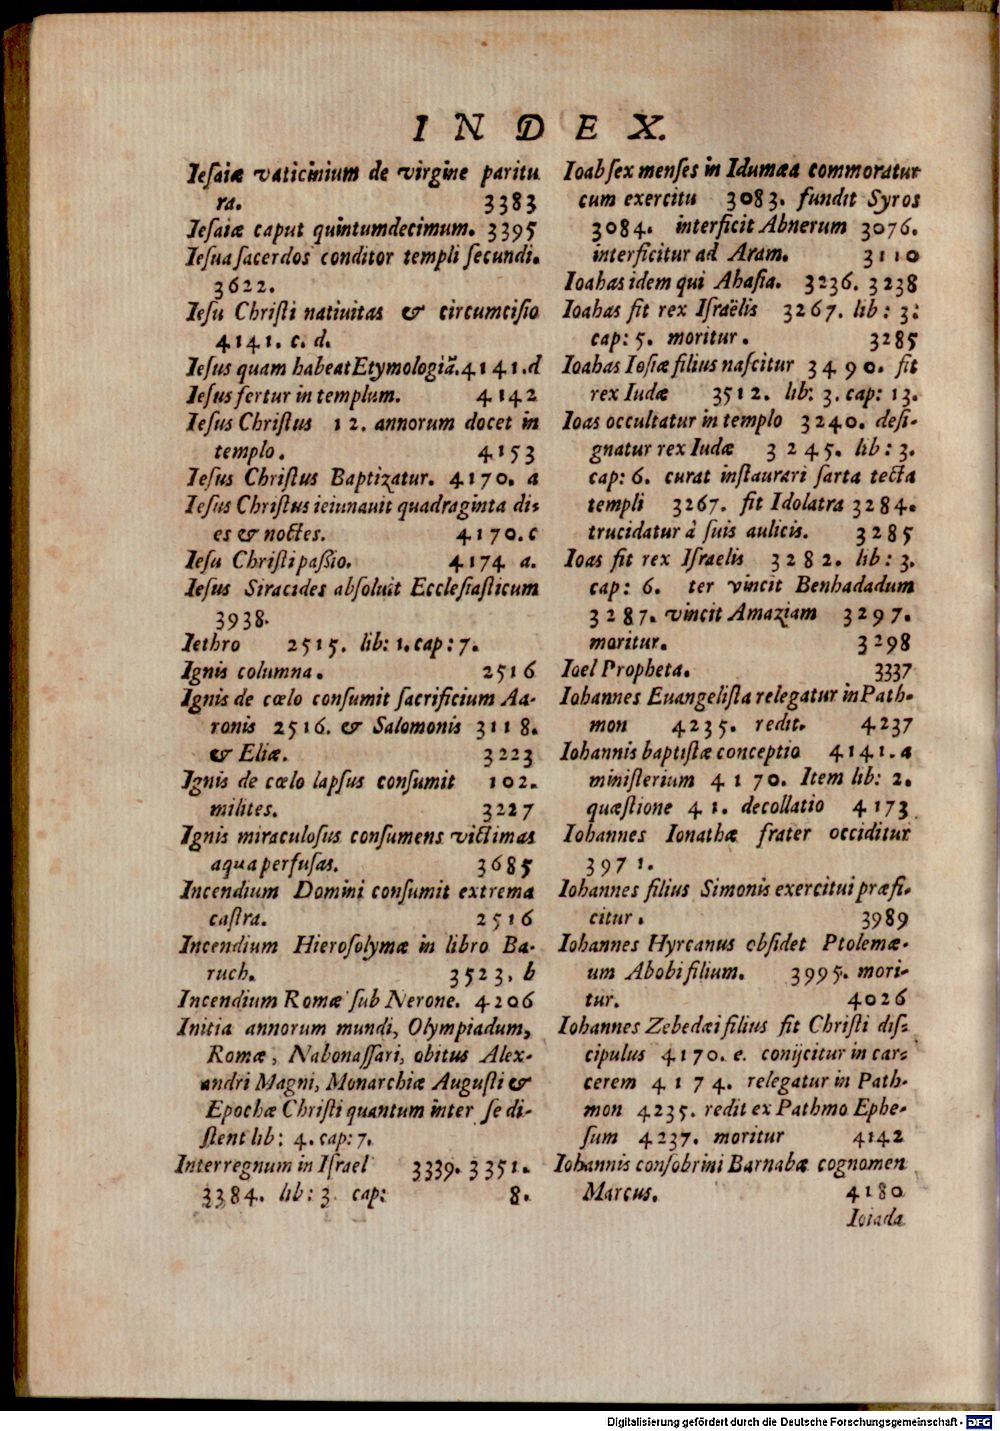 INDEX.
Ieſaiæ vaticinium de virgine paritu
ra. 3383
Ieſaiæ caput quintumdecimum. 3395
Ieſua ſacerdos conditor templi ſecundi.
3622.
Ieſu Chriſti natiuitas & circumciſio
4141. c. d.
Ieſus quam habeat Etymologiã. 4141. d
Ieſus fertur in templum. 4142
Ieſus Chriſtus 12. annorum docet in
templo. 4153
Ieſus Chriſtus Baptizatur. 4170. a
Ieſus Chriſtus ieiunauit quadraginta di-
es & noctes. 4170. c
Ieſu Chriſti paſsio. 4174 a.
Ieſus Siracides abſoluit Eccleſiaſticum
3938.
Iethro 2515. lib: 1. cap: 7.
Ignis columna. 2516
Ignis de cœlo conſumit ſacrificium Aa-
ronis 2516. & Salomonis 3118.
& Eliæ. 3223
Ignis de cœlo lapſus conſumit 102.
milites. 3227
Ignis miraculoſus conſumens victimas
aqua perfuſas. 3685
Incendium Domini conſumit extrema
caſtra. 2516
Incendium Hieroſolymæ in libro Ba-
ruch. 3523. b
Incendium Romæ ſub Nerone. 4206
Initia annorum mundi, Olympiadum,
Romæ, Nabonaſſari, obitus Alex-
andri Magni, Monarchiæ Auguſti &
Epochæ Chriſti quantum inter ſe di-
ſtent lib: 4. cap: 7.
Interregnum in Iſrael 3339. 3351.
3384. lib: 3 cap: 8.
Ioab ſex menſes in Idumæa commoratur
cum exercitu 3083. fundit Syros
3084. interficit Abnerum 3076.
interficitur ad Aram. 3110
Ioahas idem qui Ahaſia. 3236. 3238
Ioahas fit rex Iſraëlis 3267. lib: 3:
cap: 5. moritur. 3285
Ioahas Ioſiæ filius naſcitur 3490. fit
rex Iudæ 3512. lib: 3. cap: 13.
Ioas occultatur in templo 3240. deſi-
gnatur rex Iudæ 3245. lib: 3.
cap: 6. curat inſtaurari ſarta tecta
templi 3267. fit Idolatra 3284.
trucidatur à ſuis aulicis. 3285
Ioas fit rex Iſraelis 3282. lib: 3.
cap: 6. ter vincit Benhadadum
3287. vincit Amaziam 3297.
moritur. 3298
Ioel Propheta. 3337
Iohannes Euangeliſta relegatur in Path-
mon 4235. redit. 4237
Iohannis baptiſtæ conceptio 4141. a
miniſterium 4170. Item lib: 2.
quæſtione 41. decollatio 4173
Iohannes Ionathæ frater occiditur
3971.
Iohannes filius Simonis exercitui præfi-
citur. 3989
Iohannes Hyrcanus obſidet Ptolemæ-
um Abobi filium. 3995. mori-
tur. 4026
Iohannes Zebedæi filius fit Chriſti diſ-
cipulus 4170. e. conijcitur in car-
cerem 4174. relegatur in Path-
mon 4235. redit ex Pathmo Ephe-
ſum 4237. moritur 4142
Iohannis conſobrini Barnabæ cognomen
Marcus. 4180
Ioiada
Digitalisierung gefördert durch die Deutsche Forschungsgemeinschaft - DFG